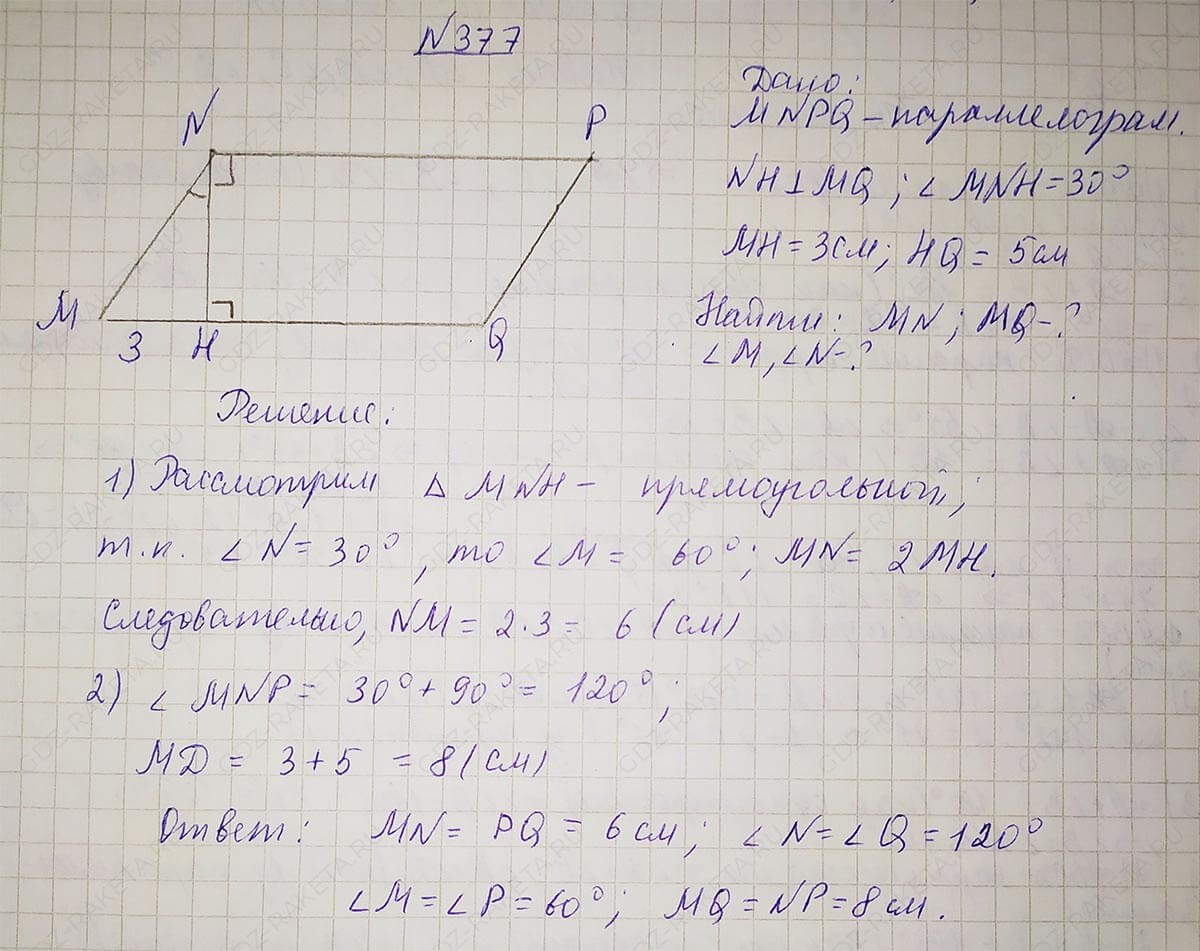 N377
Дано:
MNPQ – параллелограм.
NH⊥MQ ; ∠ MNH = 30°
MH = 3см; HQ = 5см
Найти: MN ; MQ-?
∠M, ∠N-?
N
P
M
3
H
Q
Решение:
1) Рассмотрим △ MNH – прямоугольной;
т.к. ∠ N = 30°, то ∠M = 60°; MN = 2MH.
Следовательно, NM = 2·3 = 6 (см)
2) ∠ MNP = 30° + 90° = 120°;
MD = 3 + 5 = 8 (см)
Ответ: MN = PQ = 6 см; ∠N = ∠Q = 120°
∠M = ∠P = 60°; MQ = NP = 8 см.
GDZ-RAKETA.RU